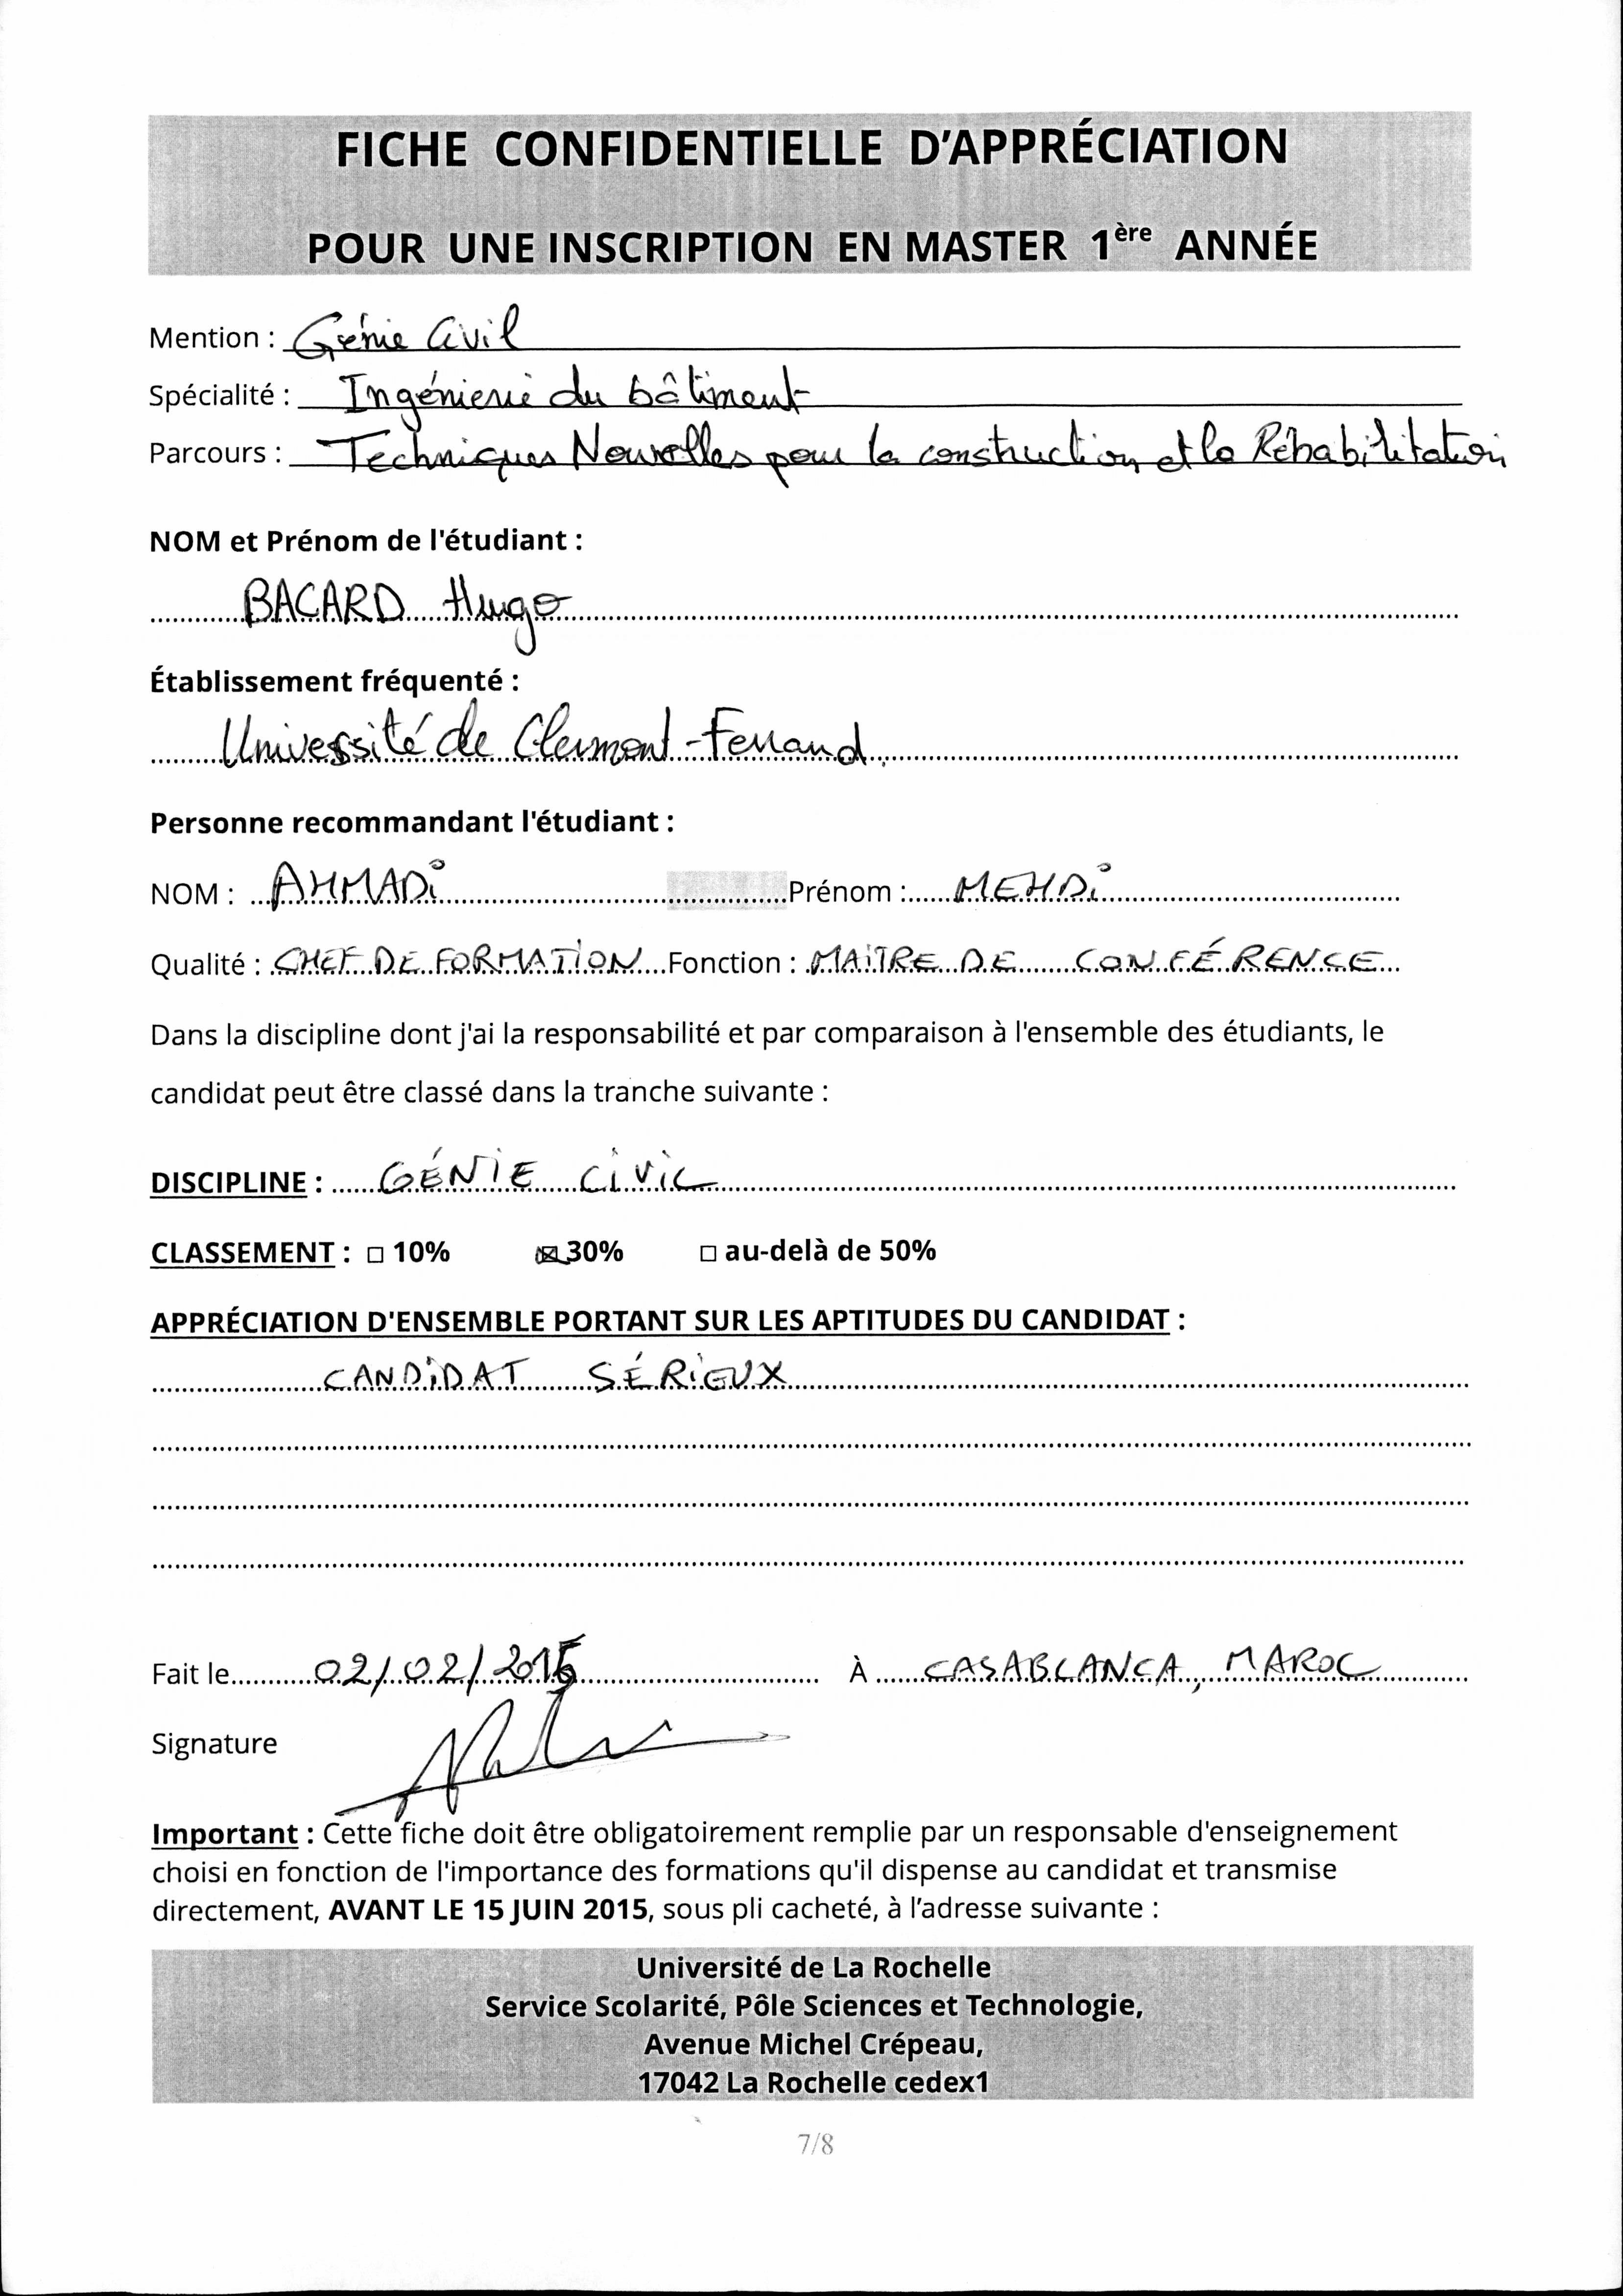 FICHE CONFIDENTIELLE D'APPRÉCIATION
POUR UNE INSCRIPTION EN MASTER 1ère ANNÉE
Mention : Génie Civil
Spécialité : Ingénierie du bâtiment
Parcours : Techniques Nouvelles pour la construction et la Réhabilitation
NOM et Prénom de l'étudiant :
BACARD Hugo
Établissement fréquenté :
Université de Clermont-Ferrand
Personne recommandant l'étudiant :
NOM : AHMADI Prénom : MEHDI
Qualité : CHEF DE FORMATION Fonction : MAITRE DE CONFÉRENCE
Dans la discipline dont j'ai la responsabilité et par comparaison à l'ensemble des étudiants, le
candidat peut être classé dans la tranche suivante :
DISCIPLINE : GÉNIE CIVIL
CLASSEMENT : ☐ 10% ☒ 30% ☐ au-delà de 50%
APPRÉCIATION D'ENSEMBLE PORTANT SUR LES APTITUDES DU CANDIDAT :
CANDIDAT SÉRIEUX
Fait le 02/02/2015 À CASABLANCA, MAROC
Signature
Important : Cette fiche doit être obligatoirement remplie par un responsable d'enseignement
choisi en fonction de l'importance des formations qu'il dispense au candidat et transmise
directement, AVANT LE 15 JUIN 2015, sous pli cacheté, à l'adresse suivante :
Université de La Rochelle
Service Scolarité, Pôle Sciences et Technologie,
Avenue Michel Crépeau,
17042 La Rochelle cedex1
7/8